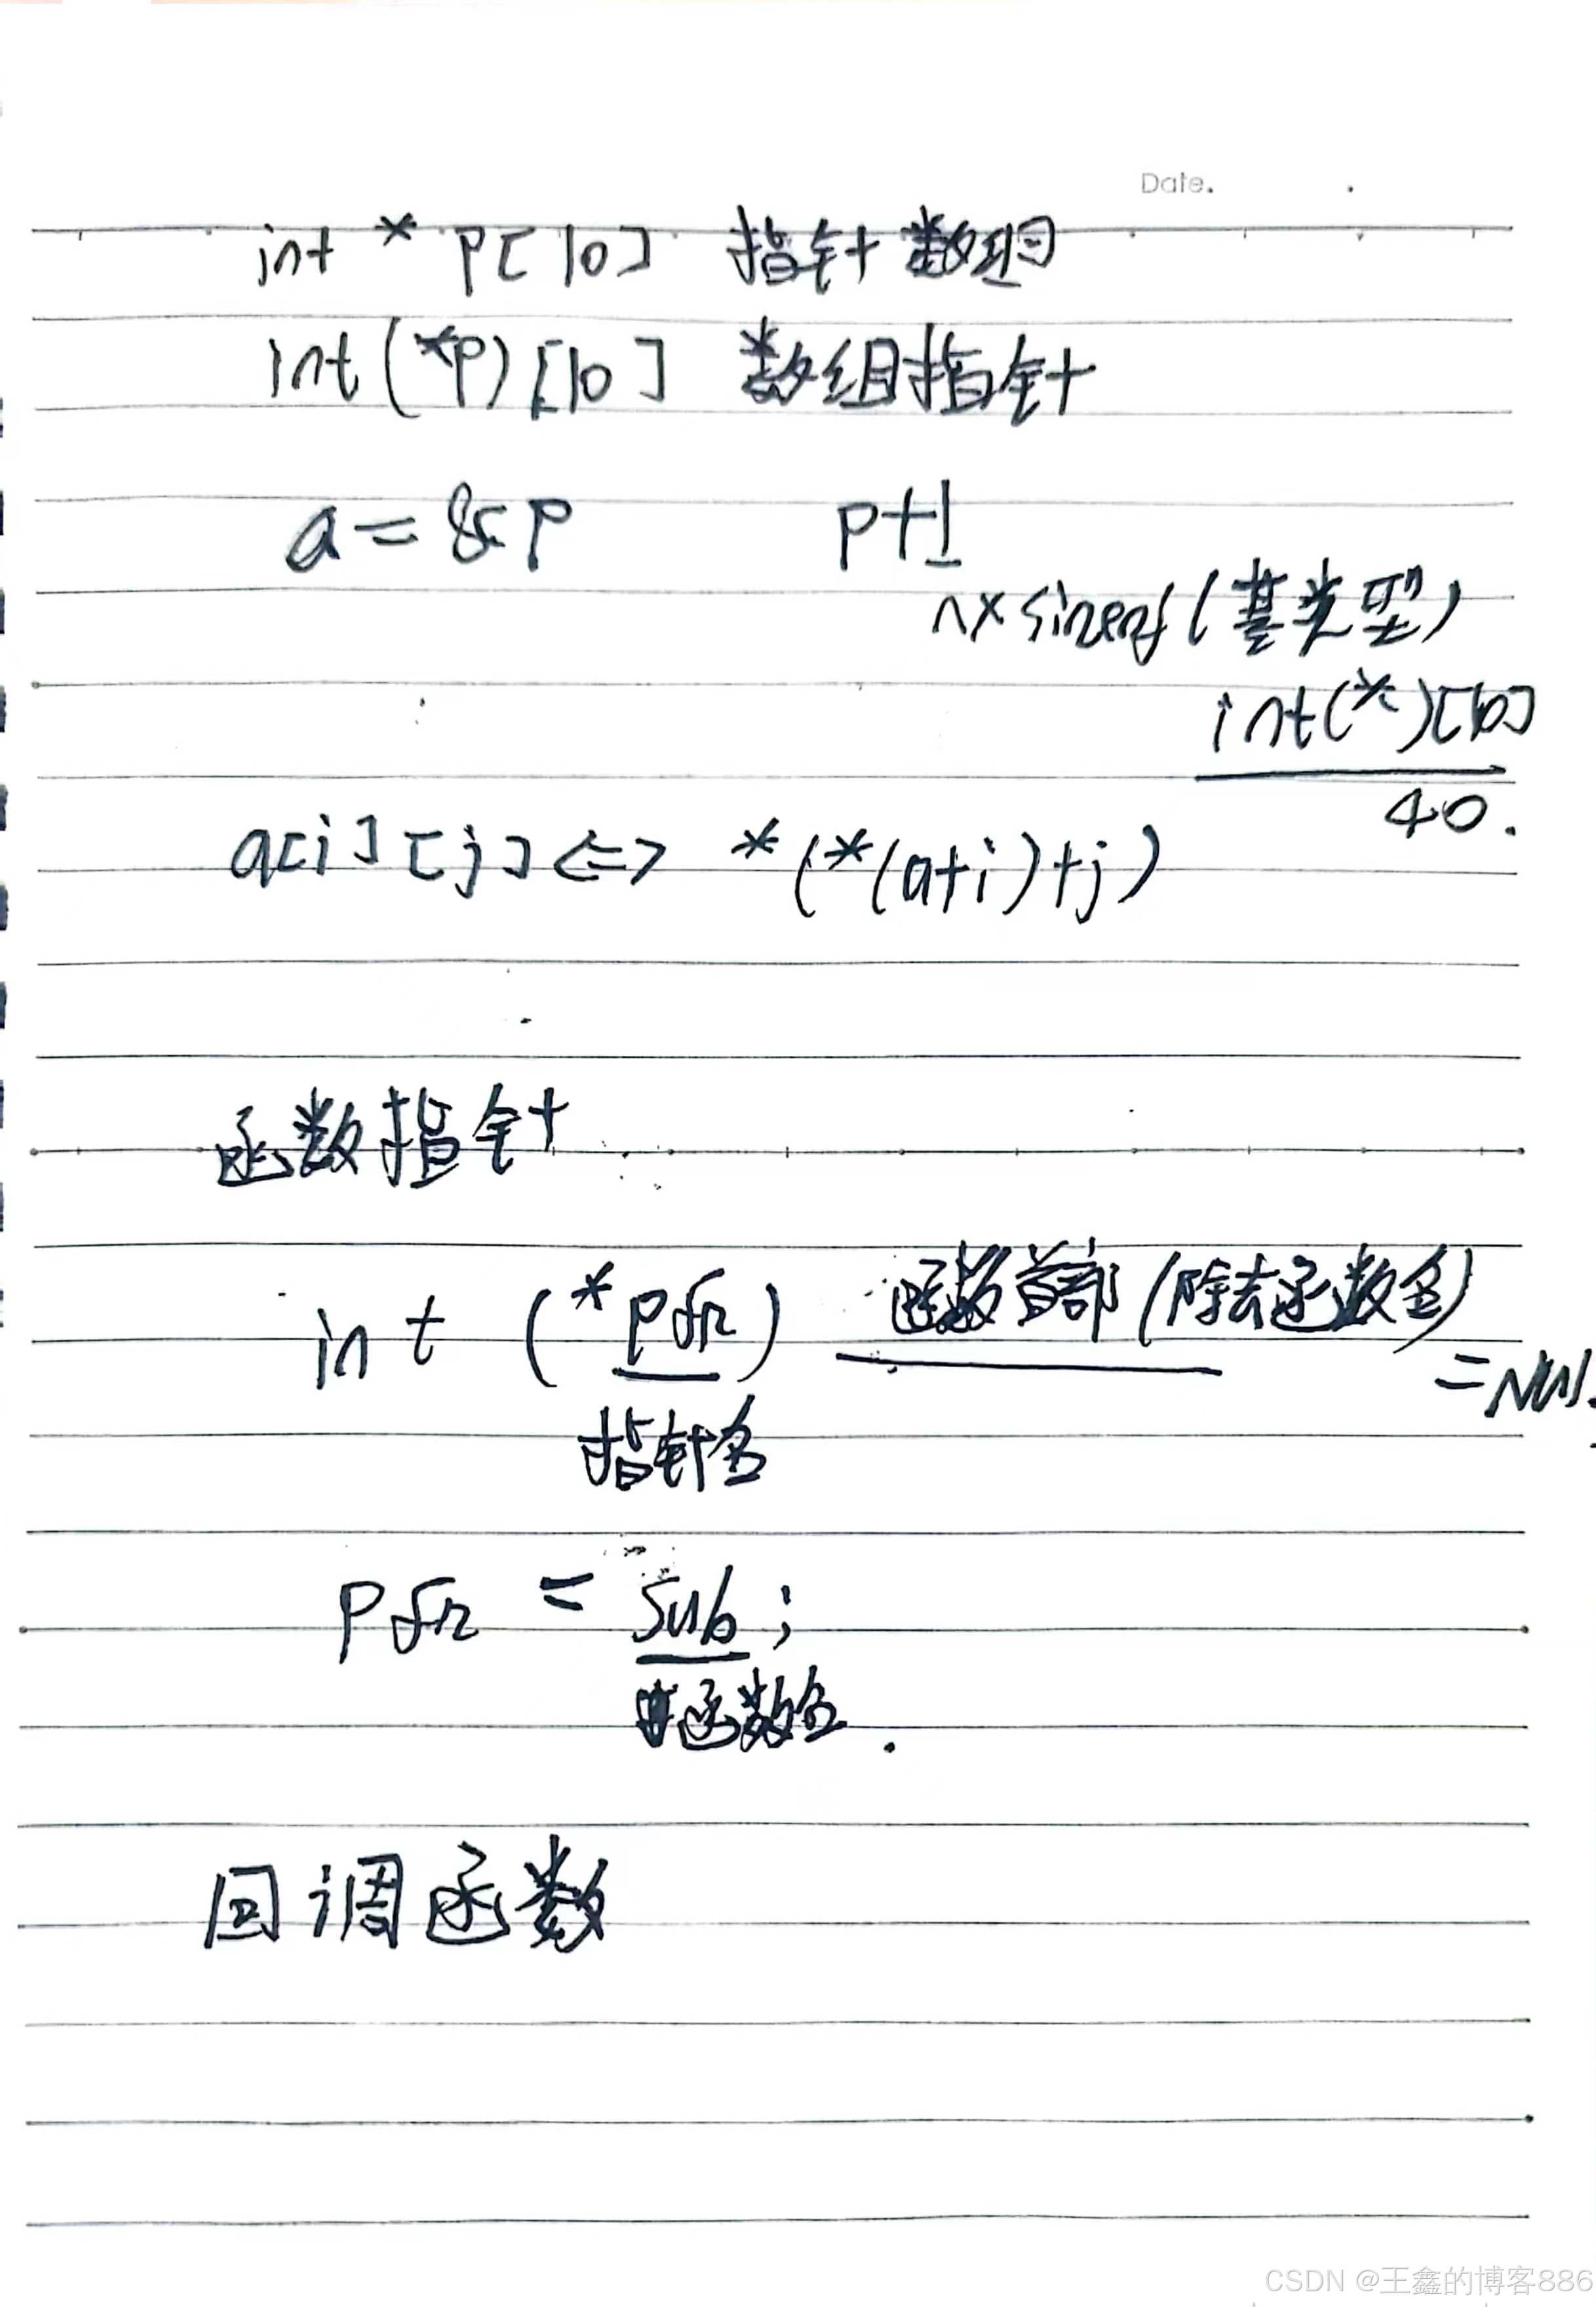 Date.
int *p[10] 指针数组
int(*p)[10] 数组指针
a=&p p+1
n×sizeof(基类型)
int(*)[10]
40.
a[i][j]<=> *(*(a+i)+j)
函数指针
int (*pfn) 函数首部(除去函数名)
=NULL
指针名
pfn = sub;
函数名.
回调函数
CSDN @王鑫的博客886